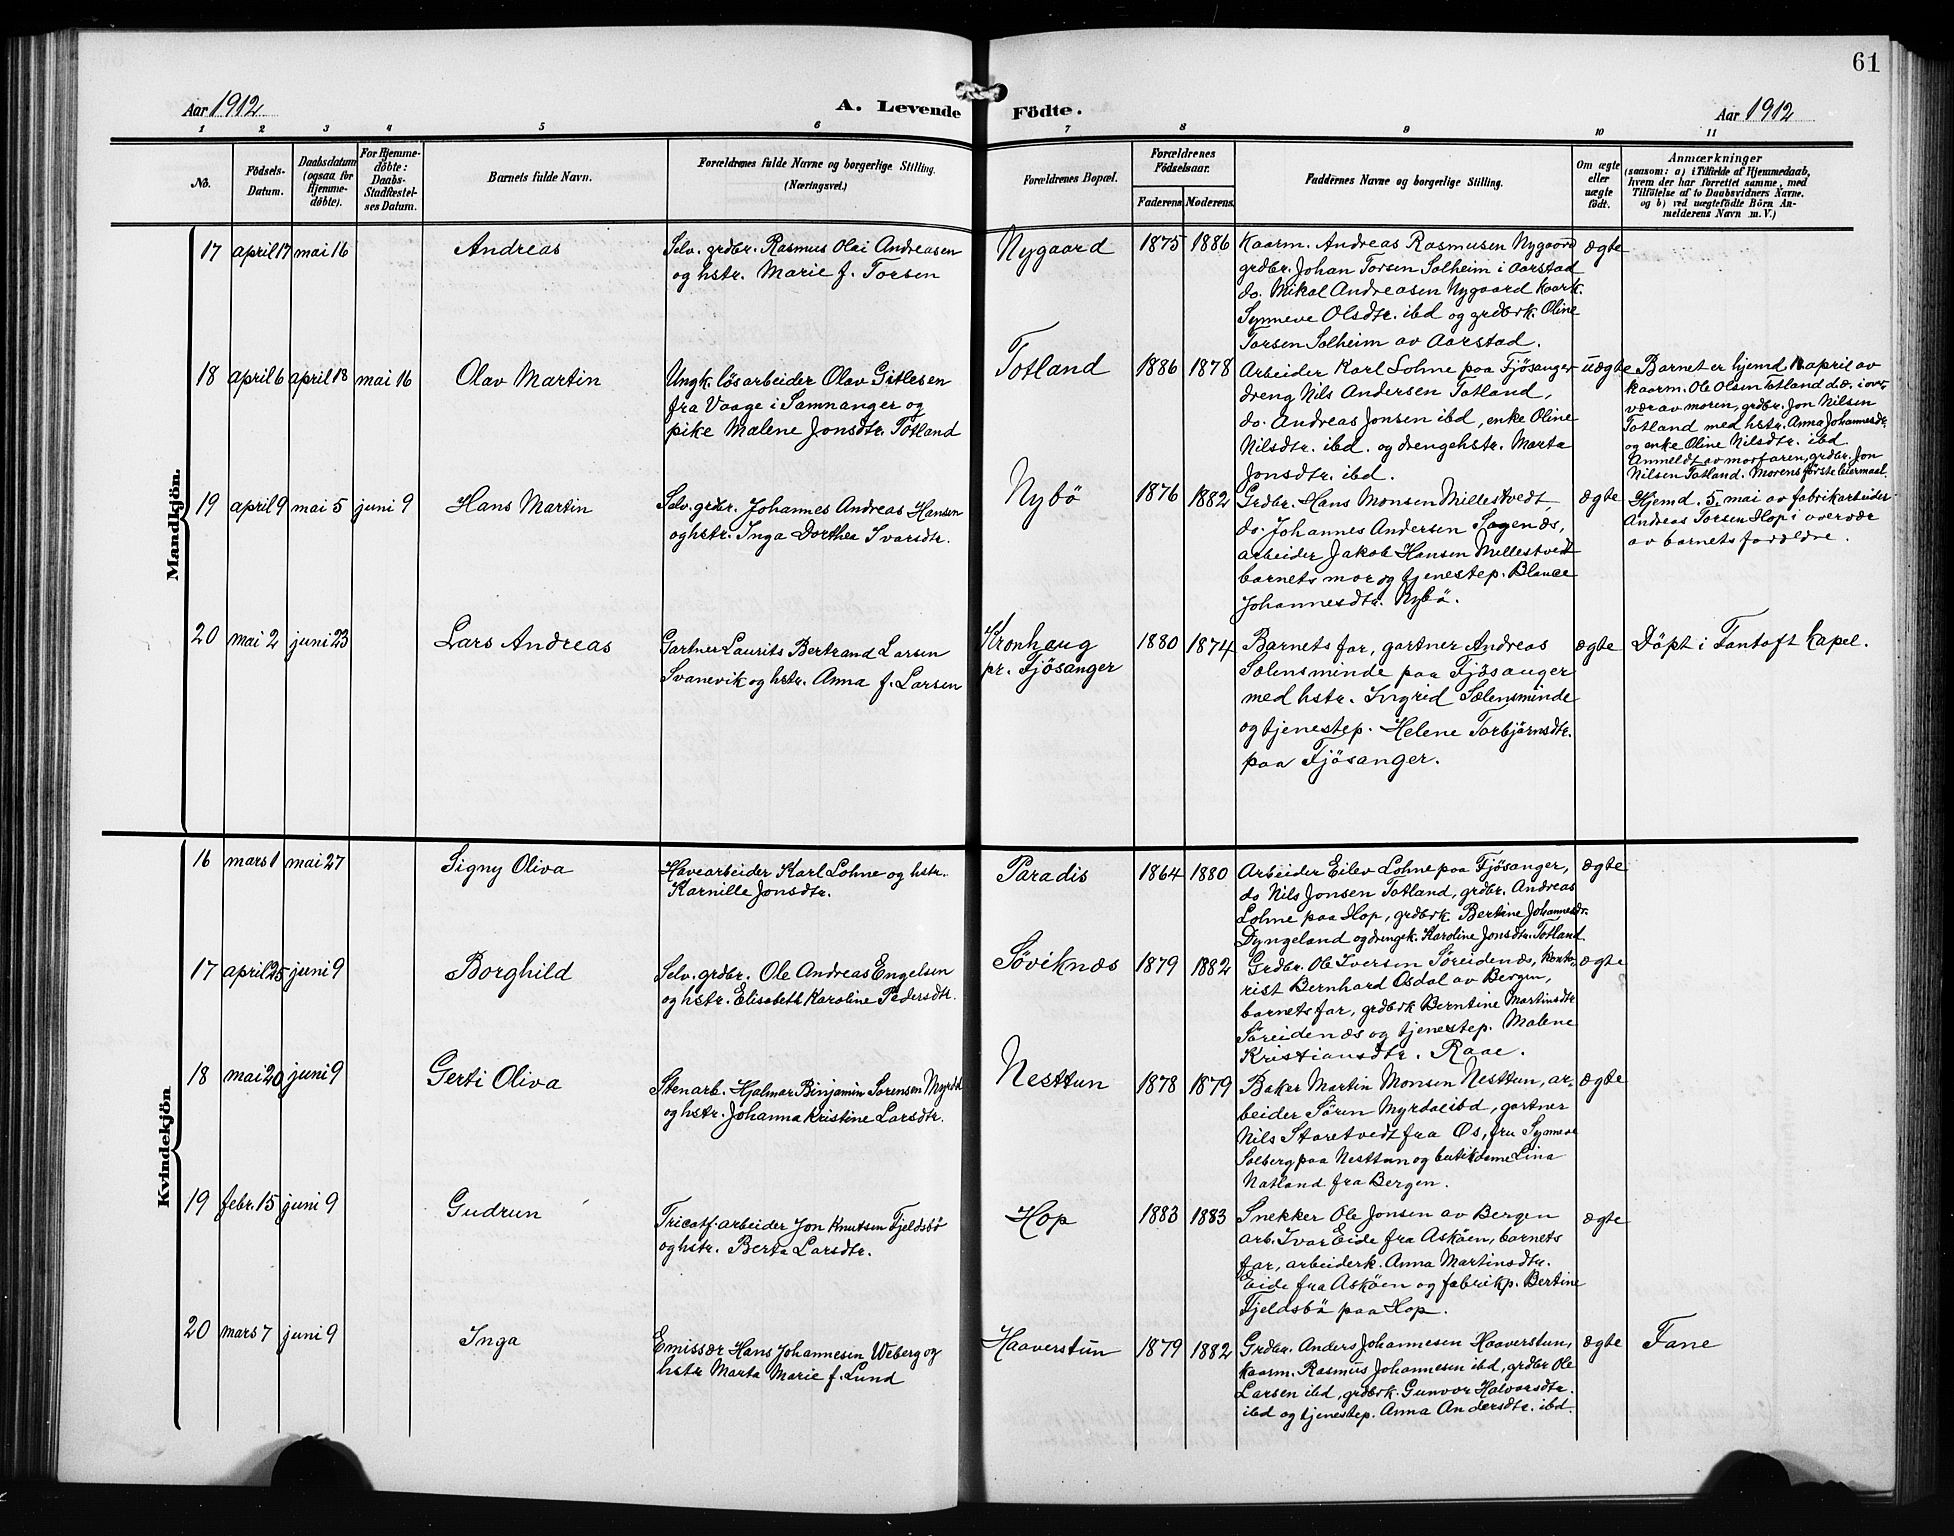 61
Aar 1912
A. Levende Födte.
Aar 1912
1 2 3 4 5 6 7 8 9 10 11
No.
Födsels-
Datum.
Daabsdatum
(ogsaa for
Hjemme-
døbte).
For Hjemme-
døbte:
Daabs-
Stadfæstel-
ses Datum.
Barnets fulde Navn.
Forældrenes fulde Navne og borgerlige Stilling.
(Næringsvei.)
Forældrenes Bopæl.
Forældrenes
Födselsaar.
Faderens
Moderens.
Faddernes Navne og borgerlige Stilling.
Om ægte
eller
uægte
født.
Anmærkninger
(saasom: a) i Tilfælde af Hjemmedaab,
hvem der har forrettet samme, med
Tilføielse af to Daabsvidners Navne.
og b) ved uægtefødte Börn An-
melderens Navn m. V.)
Mandkjön.
17 april 17 mai 16
Andreas
Selv. grdbr. Rasmus Olai Andreasen
og hstr. Marie f. Torsen
Nygaard
1875 1886
Kaarm. Andreas Rasmusen Nygaard
grdbr. Johan Torsen Solheim i Aarstad
do. Mikal Andreasen Nygaard kaark.
Synneve Olsdtr. ibd og grdbrk. Oline
Torsen Solheim av Aarstad.
ægte
18 april 6 april 18 mai 16
Olav Martin
Ungk. lösarbeider Olav Gitlesen
fra Vaage i Samnanger og
pike Malene Jonsdtr. Totland
Totland
1886 1878
Arbeider Karl Lohne paa Fjösanger
dreng Nils Andersen Totland,
do. Andreas Jonsen ibd, enke Oline
Nilsdtr. ibd. og drengehstr. Marta
Jonsdtr. ibd.
uægte
Barnet er hjemd april av
kaarm. Ole Olsen Totland d.æ. i over-
vær av moren, grdbr. Jon Nilsen
Totland med hstr. Anna Johannesdr.
og enke Oline Nilsdtr. ibd.
Anmeldt av morfaren, grdbr. Jon
Nilsen Totland. Morens förste leiermaal.
19 april 9 mai 5 juni 9
Hans Martin
Selv. grdbr. Johannes Andreas Hansen
og hstr. Inga Dorthea Ivarsdtr.
Nybö
1876 1882
Grdbr. Hans Monsen Millestvedt,
do. Johannes Andersen Sagenæs,
arbeider Jakob Hansen Millestvedt
barnets mor og tjenestep. Blanca
Johannesdtr. Nybö.
ægte
Hjemd. 5. mai av fabrikarbeider
Andreas Torsen Hop i overvær
av barnets forældre.
20 mai 2 juni 23
Lars Andreas
Gartner Laurits Bertrand Larsen
Svanevik og hstr. Anna f. Larsen
Kronhaug
pr. Fjösanger
1880 1874
Barnets far, gartner Andreas
Sælensminde paa Fjösanger
med hstr. Ingrid Sælensminde
og tjenestep. Helene Torbjørnsdtr.
paa Fjösanger.
ægte
Döpt i Fantoft kapel.
Kvindekjön
16 mars 1 mai 27
Signy Oliva
Havearbeider Karl Lohne og hstr.
Karnille Jonsdtr.
Paradis
1864 1880
Arbeider Eilev Lohne paa Fjösanger,
do Nils Jonsen Totland, grdbr. Andreas
Lohne paa Hop, grdbrk Bertine Johannesdr.
Dyngeland og drengek. Karoline Jonsdtr. Totland
ægte
17 april 25 juni 9
Borghild
Selv. grdbr. Ole Andreas Engelsen
og hstr. Elisabeth Karoline Pedersdtr.
Söviknæs
1879 1882
Grdbr. Ole Iversen Söreidenæs, konto-
rist Bernhard Osdal av Bergen,
barnets far, grdbrk Berntine Martinsdtr
Söreidenæs og tjenestep. Malene
Kristiansdtr. Raae.
ægte
18 mai 20 juni 9
Gerti Oliva
Stenarb. Hjalmar Binjamin Sørensen Myrdal
og hstr. Johanna Kristine Larsdtr.
Nesttun
1878 1879
Baker Martin Monsen Nesttun, ar-
beider Sören Myrdal ibd, gartner
Nils Storetvedt fra Os, fru Synnøve
Solberg paa Nesttun og butikdame Lina
Natland fra Bergen.
ægte
19 febr. 15 juni 9
Gudrun
Tricotf. arbeider Jon Knutsen Fjeldsbö
og hstr. Berta Larsdtr.
Hop
1883 1883
Snekker Ole Jonsen av Bergen
arb. Ivar Eide fra Asköen, barnets
far, arbeiderk. Anna Martinsdtr.
Eide fra Asköen og fabrikp. Bertine
Fjeldsbö paa Hop.
ægte
20 mars 7 juni 9
Inga
Emissær Hans Johannesen Weberg og
hstr Marta Marie f. Lund
Haaverstun
1879 1882
Grdbr. Anders Johannesen Haaverstun,
kaarm. Rasmus Johannesen ibd, grdbr Ole
Larsen ibd, grdbrk. Gunvor Halvorsdtr.
ibd og tjenestep. Anna Andersdtr. ibd.
ægte
Fane